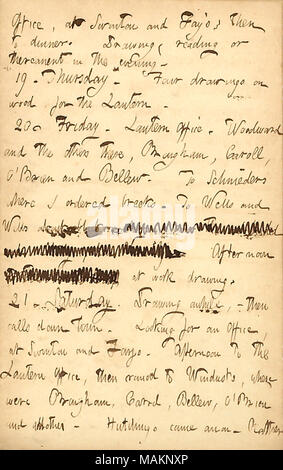 Office, at Swinton and Fay's; then
to dinner. Drawing, reading or
thereanent in the evening.
19. Thursday. Fair drawings on
wood for the Lantern.
20. Friday. Lantern Office. Woodward
and the others there, Brougham, Carroll,
O'Brien and Bellew. To Schmieders
where I ordered breeks. To Wells and
Webbs
Afternoon
at work drawing.
21. Saturday. Drawing awhile, then
calls down town. Looking for an Office
at Swinton and Fays. Afternoon to the
Lantern Office, then round to Windusts, where
were Brougham, Carrol, Bellew, O'Brien
and another. Hutchings came anon.
alamy
Image ID: MAKNXP
www.alamy.com